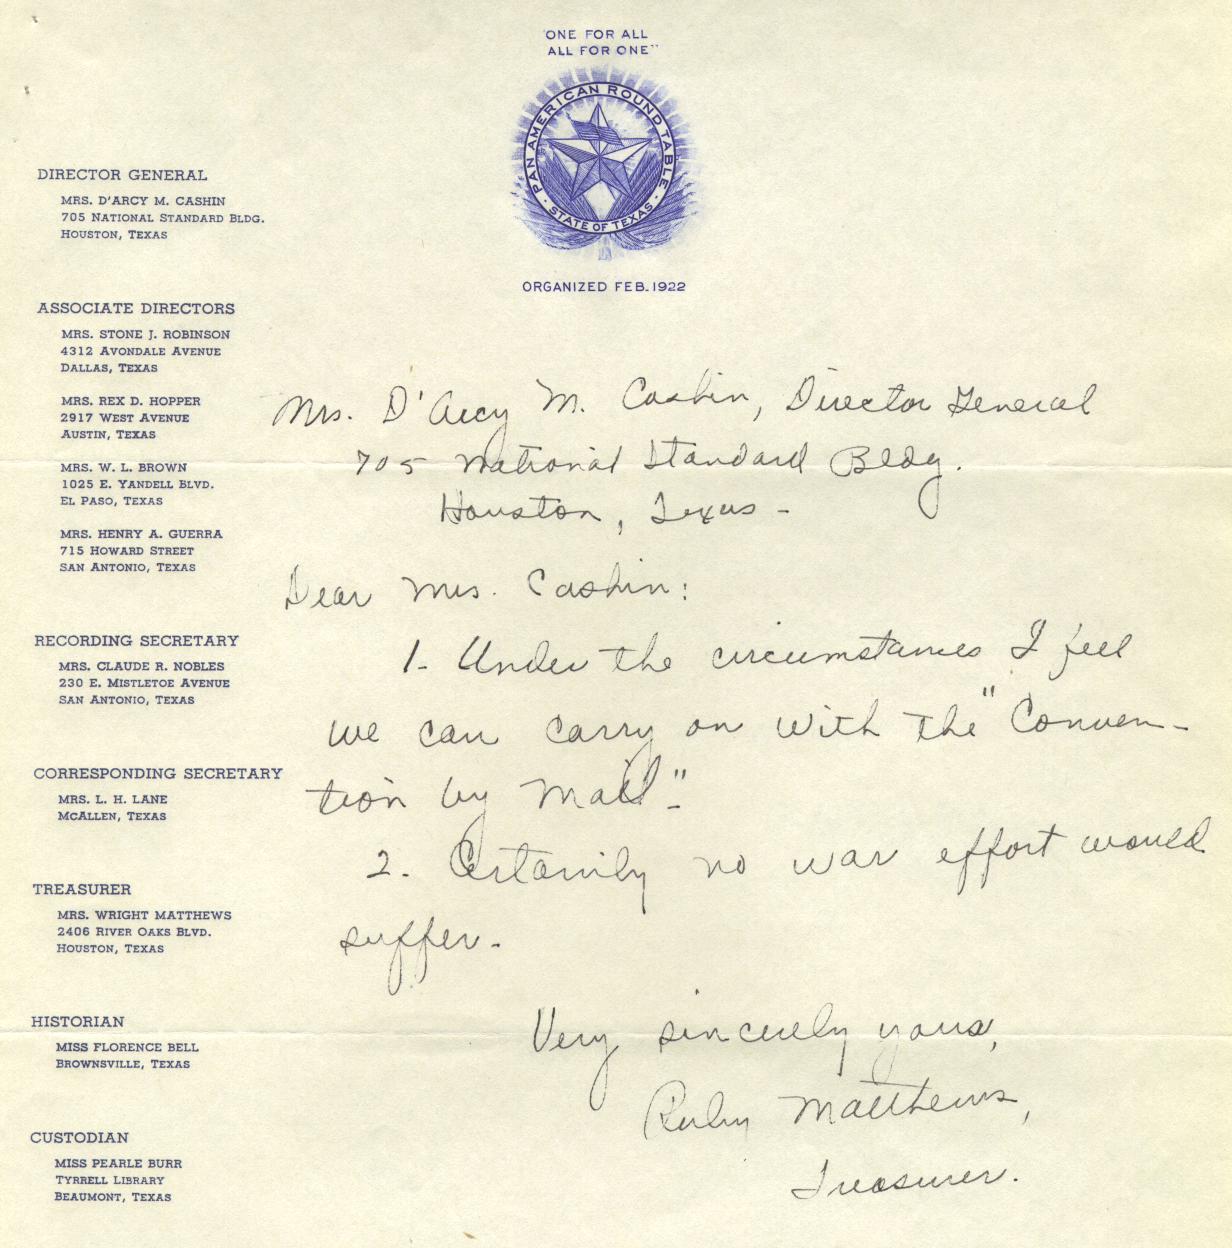 "ONE FOR ALL
ALL FOR ONE"
PAN AMERICAN ROUND TABLE
STATE OF TEXAS
ORGANIZED FEB. 1922
DIRECTOR GENERAL
MRS. D'ARCY M. CASHIN
705 NATIONAL STANDARD BLDG.
HOUSTON, TEXAS
ASSOCIATE DIRECTORS
MRS. STONE J. ROBINSON
4312 AVONDALE AVENUE
DALLAS, TEXAS
MRS. REX D. HOPPER
2917 WEST AVENUE
AUSTIN, TEXAS
MRS. W. L. BROWN
1025 E. YANDELL BLVD.
EL PASO, TEXAS
MRS. HENRY A. GUERRA
715 HOWARD STREET
SAN ANTONIO, TEXAS
RECORDING SECRETARY
MRS. CLAUDE R. NOBLES
230 E. MISTLETOE AVENUE
SAN ANTONIO, TEXAS
CORRESPONDING SECRETARY
MRS. L. H. LANE
MCALLEN, TEXAS
TREASURER
MRS. WRIGHT MATTHEWS
2406 RIVER OAKS BLVD.
HOUSTON, TEXAS
HISTORIAN
MISS FLORENCE BELL
BROWNSVILLE, TEXAS
CUSTODIAN
MISS PEARLE BURR
TYRRELL LIBRARY
BEAUMONT, TEXAS
Mrs. D'Arcy M. Cashin, Director General
705 National Standard Bldg.
Houston, Texas -
Dear Mrs. Cashin:
1. Under the circumstances I feel
we can carry on with the "Conven-
tion by Mail".
2. Certainly no war effort would
suffer.
Very sincerely yours,
Ruby Matthews,
Treasurer.